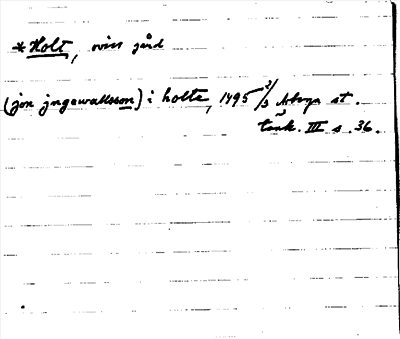 *Holt, oviss gård
(jon jngewallsson) i holte, 1495 2/3 Arboga st.
tänk. III s. 36.